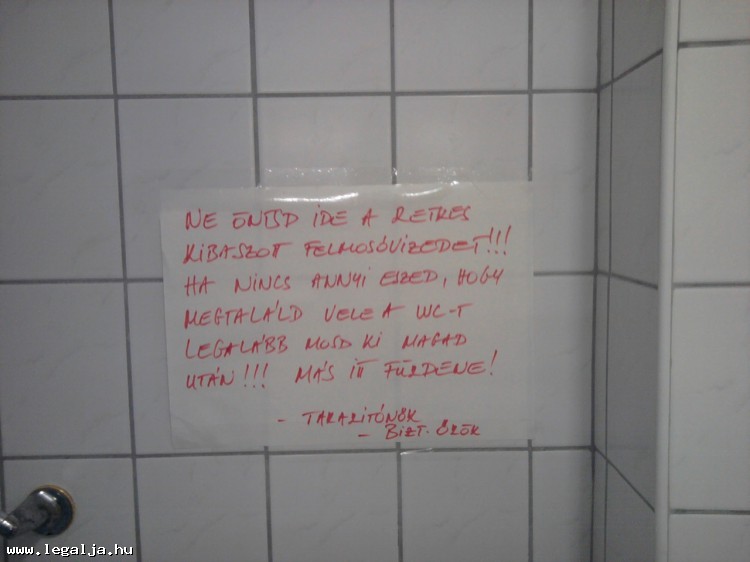 NE ÖNTSD IDE A RETKES
KIBASZOTT FELMOSÓVIZEDET!!!
HA NINCS ANNYI ESZED, HOGY
MEGTALÁLD VELE A WC-T
LEGALÁBB MOSD KI MAGAD
UTÁN!!! MÁS ITT FÜRDENE!
- TAKARITÓNŐK
- BIZT. ŐRÖK
www.legalja.hu